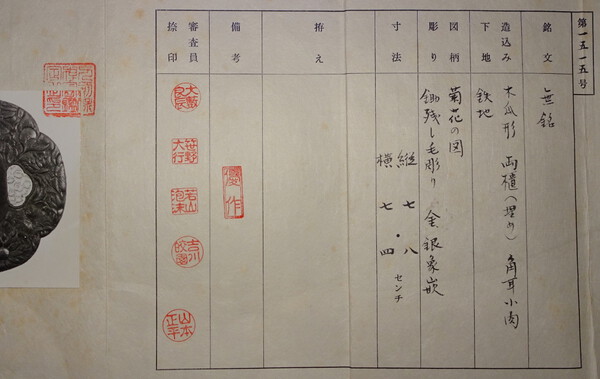 第一五一五号
銘文
無銘
造込み
木瓜形 両櫃(埋め) 角耳小肉
下地
鉄地
図柄
菊花の図
彫り
鋤残し毛彫り 金銀象嵌
寸法
縦 七・八
横 七・四 センチ
拵え
備考
優作
審査員
捺印
笹野
大行
若山
泡沫
吉川
山本
正平